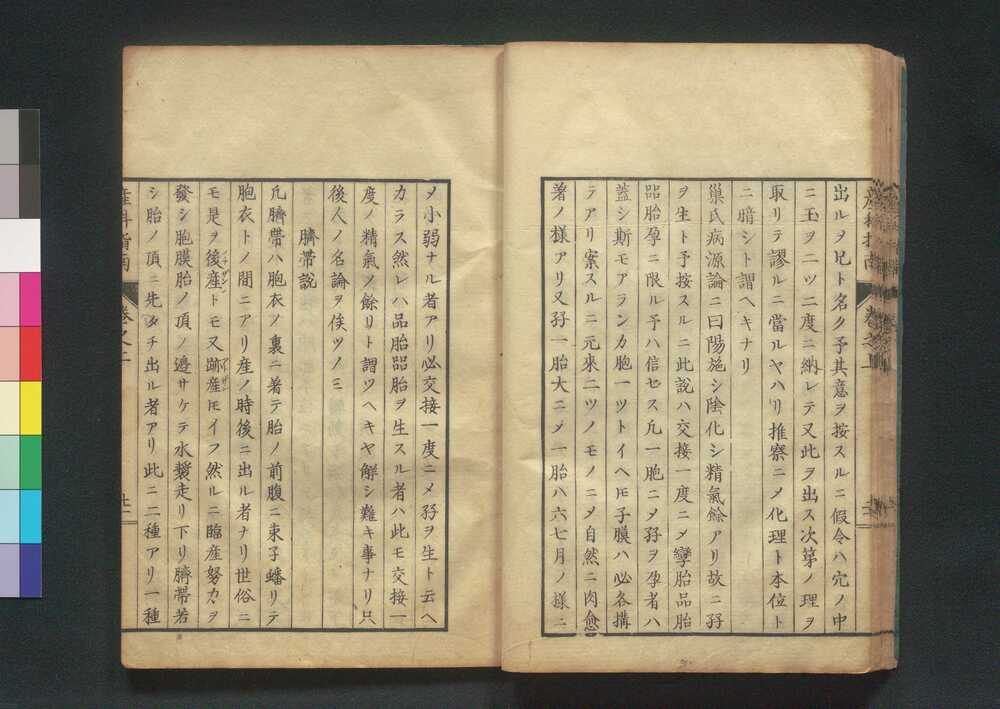 出ルヲ兄ト名ク予其意ヲ按スルニ假令ハ穴ノ中
ニ玉ヲ二ツ二度ニ納レテ又此ヲ出ス次第ノ理ヲ
取リテ謬ルニ當ルヤハリ推察ニメ化理ト本位ト
ニ暗シト謂ヘキナリ
巢氏病源論ニ曰陽施シ陰化シ精氣餘アリ故ニ孖
ヲ生ト予按スルニ此説ハ交接一度ニメ孿胎品胎
㗊胎孕ニ限ル予ハ信セス凡一胞ニメ孖ヲ孕者ハ
蓋シ斯モアランカ胞一ツトイヘ𪜈子膜ハ必各搆
テアリ案スルニ元來二ツノモノニメ自然ニ肉愈
着ノ樣アリ又孖一胎大ニメ一胎ハ六七月ノ樣ニ
産科指南 卷之二 廿一
メ小弱ナル者アリ必交接一度ニメ孖ヲ生ト云ヘ
カラス然レハ品胎㗊胎ヲ生スル者ハ此モ交接一
度ノ精氣ノ餘リト謂ツヘキヤ觧シ難キ事ナリ只
後人ノ名論ヲ俟ツノミ
臍帶説
凡臍帶ハ胞衣ノ裏ニ著テ胎ノ前腹ニ束子蟠リテ
胞衣トノ間ニアリ産ノ時後ニ出ル者ナリ世俗ニ
モ是ヲ後産トモ又跡産𪜈イフ然ルニ臨産努力ヲ
發シ胞膜胎ノ頂ノ邉サケテ水漿走リ下リ臍帶若
シ胎ノ頂ニ先タチ出ル者アリ此ニ二種アリ一種
産科指南 卷之二